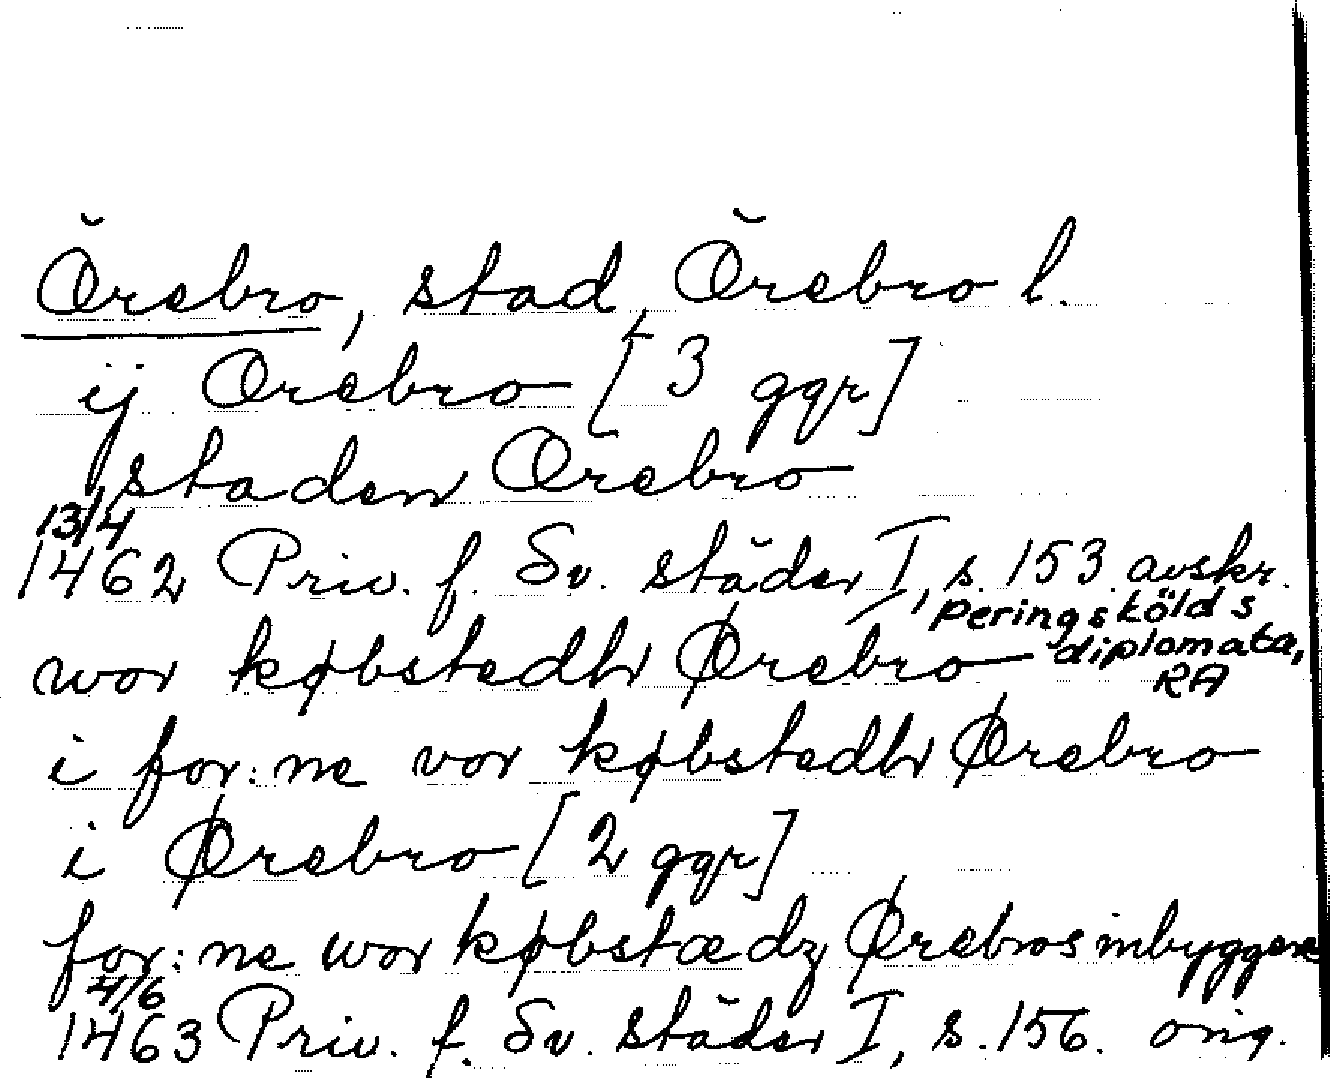 Örebro, stad, Örebro l.
ij Orebro [3 ggr]
staden Orebro
13/4
1462 Priv. f. Sv. städer I, s. 153 avskr.
Peringskölds
diplomata,
RA
wor købstedh Ørebro
i for:ne vor købstedh Ørebro
i Ørebro [2 ggr]
for:ne wor købstædz Ørebros inbyggere
4/6
1463 Priv. f. Sv. städer I, s. 156. orig.